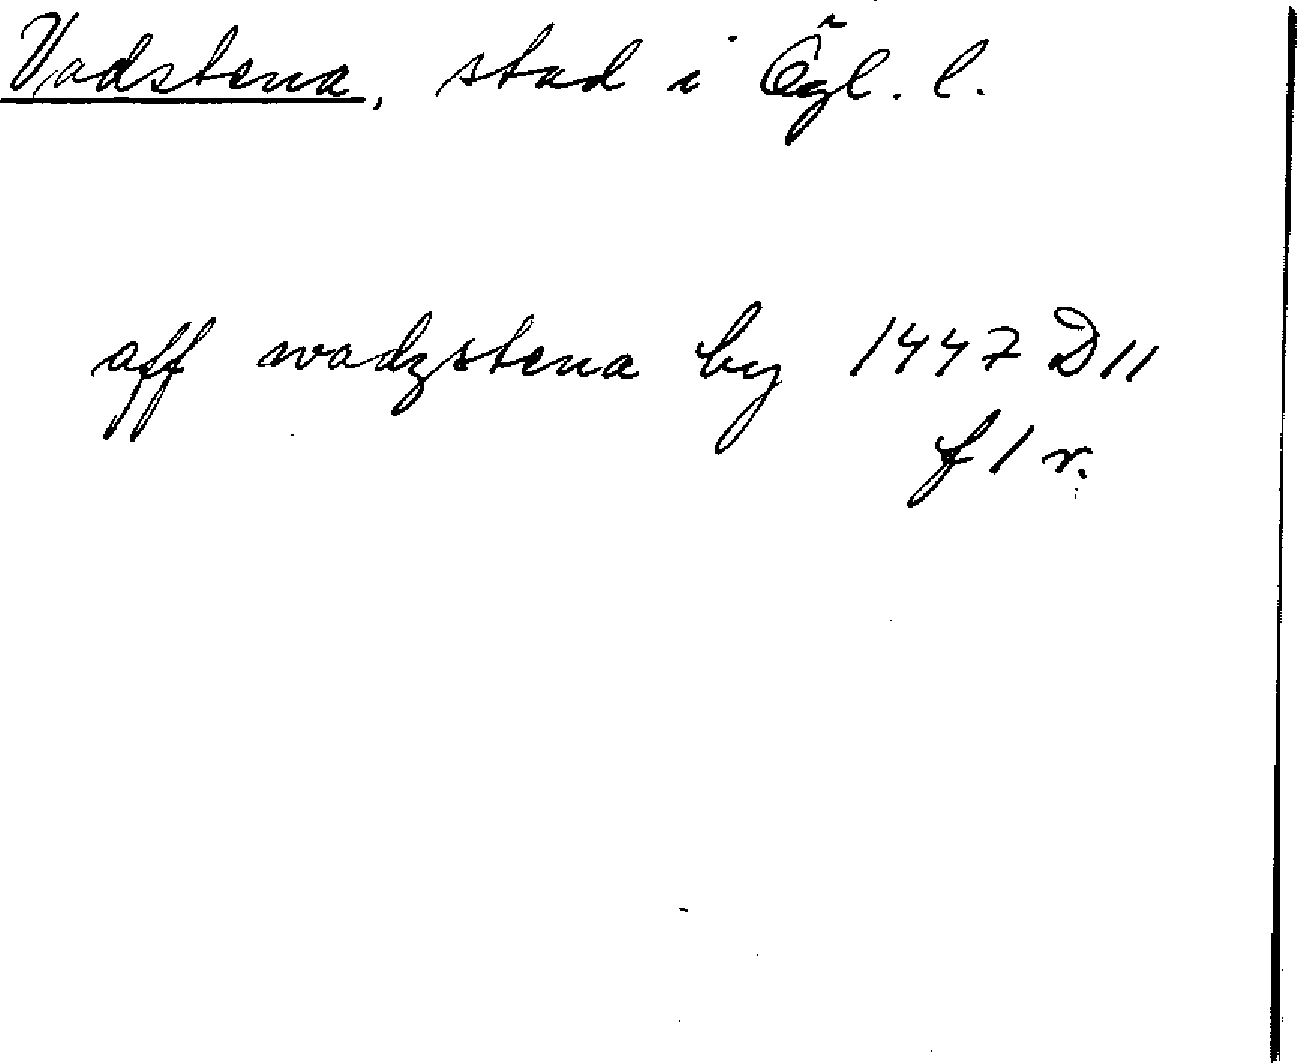 Vadstena, stad i Ögl. l.
aff wadzstena by 1447 D11
f 1 r.